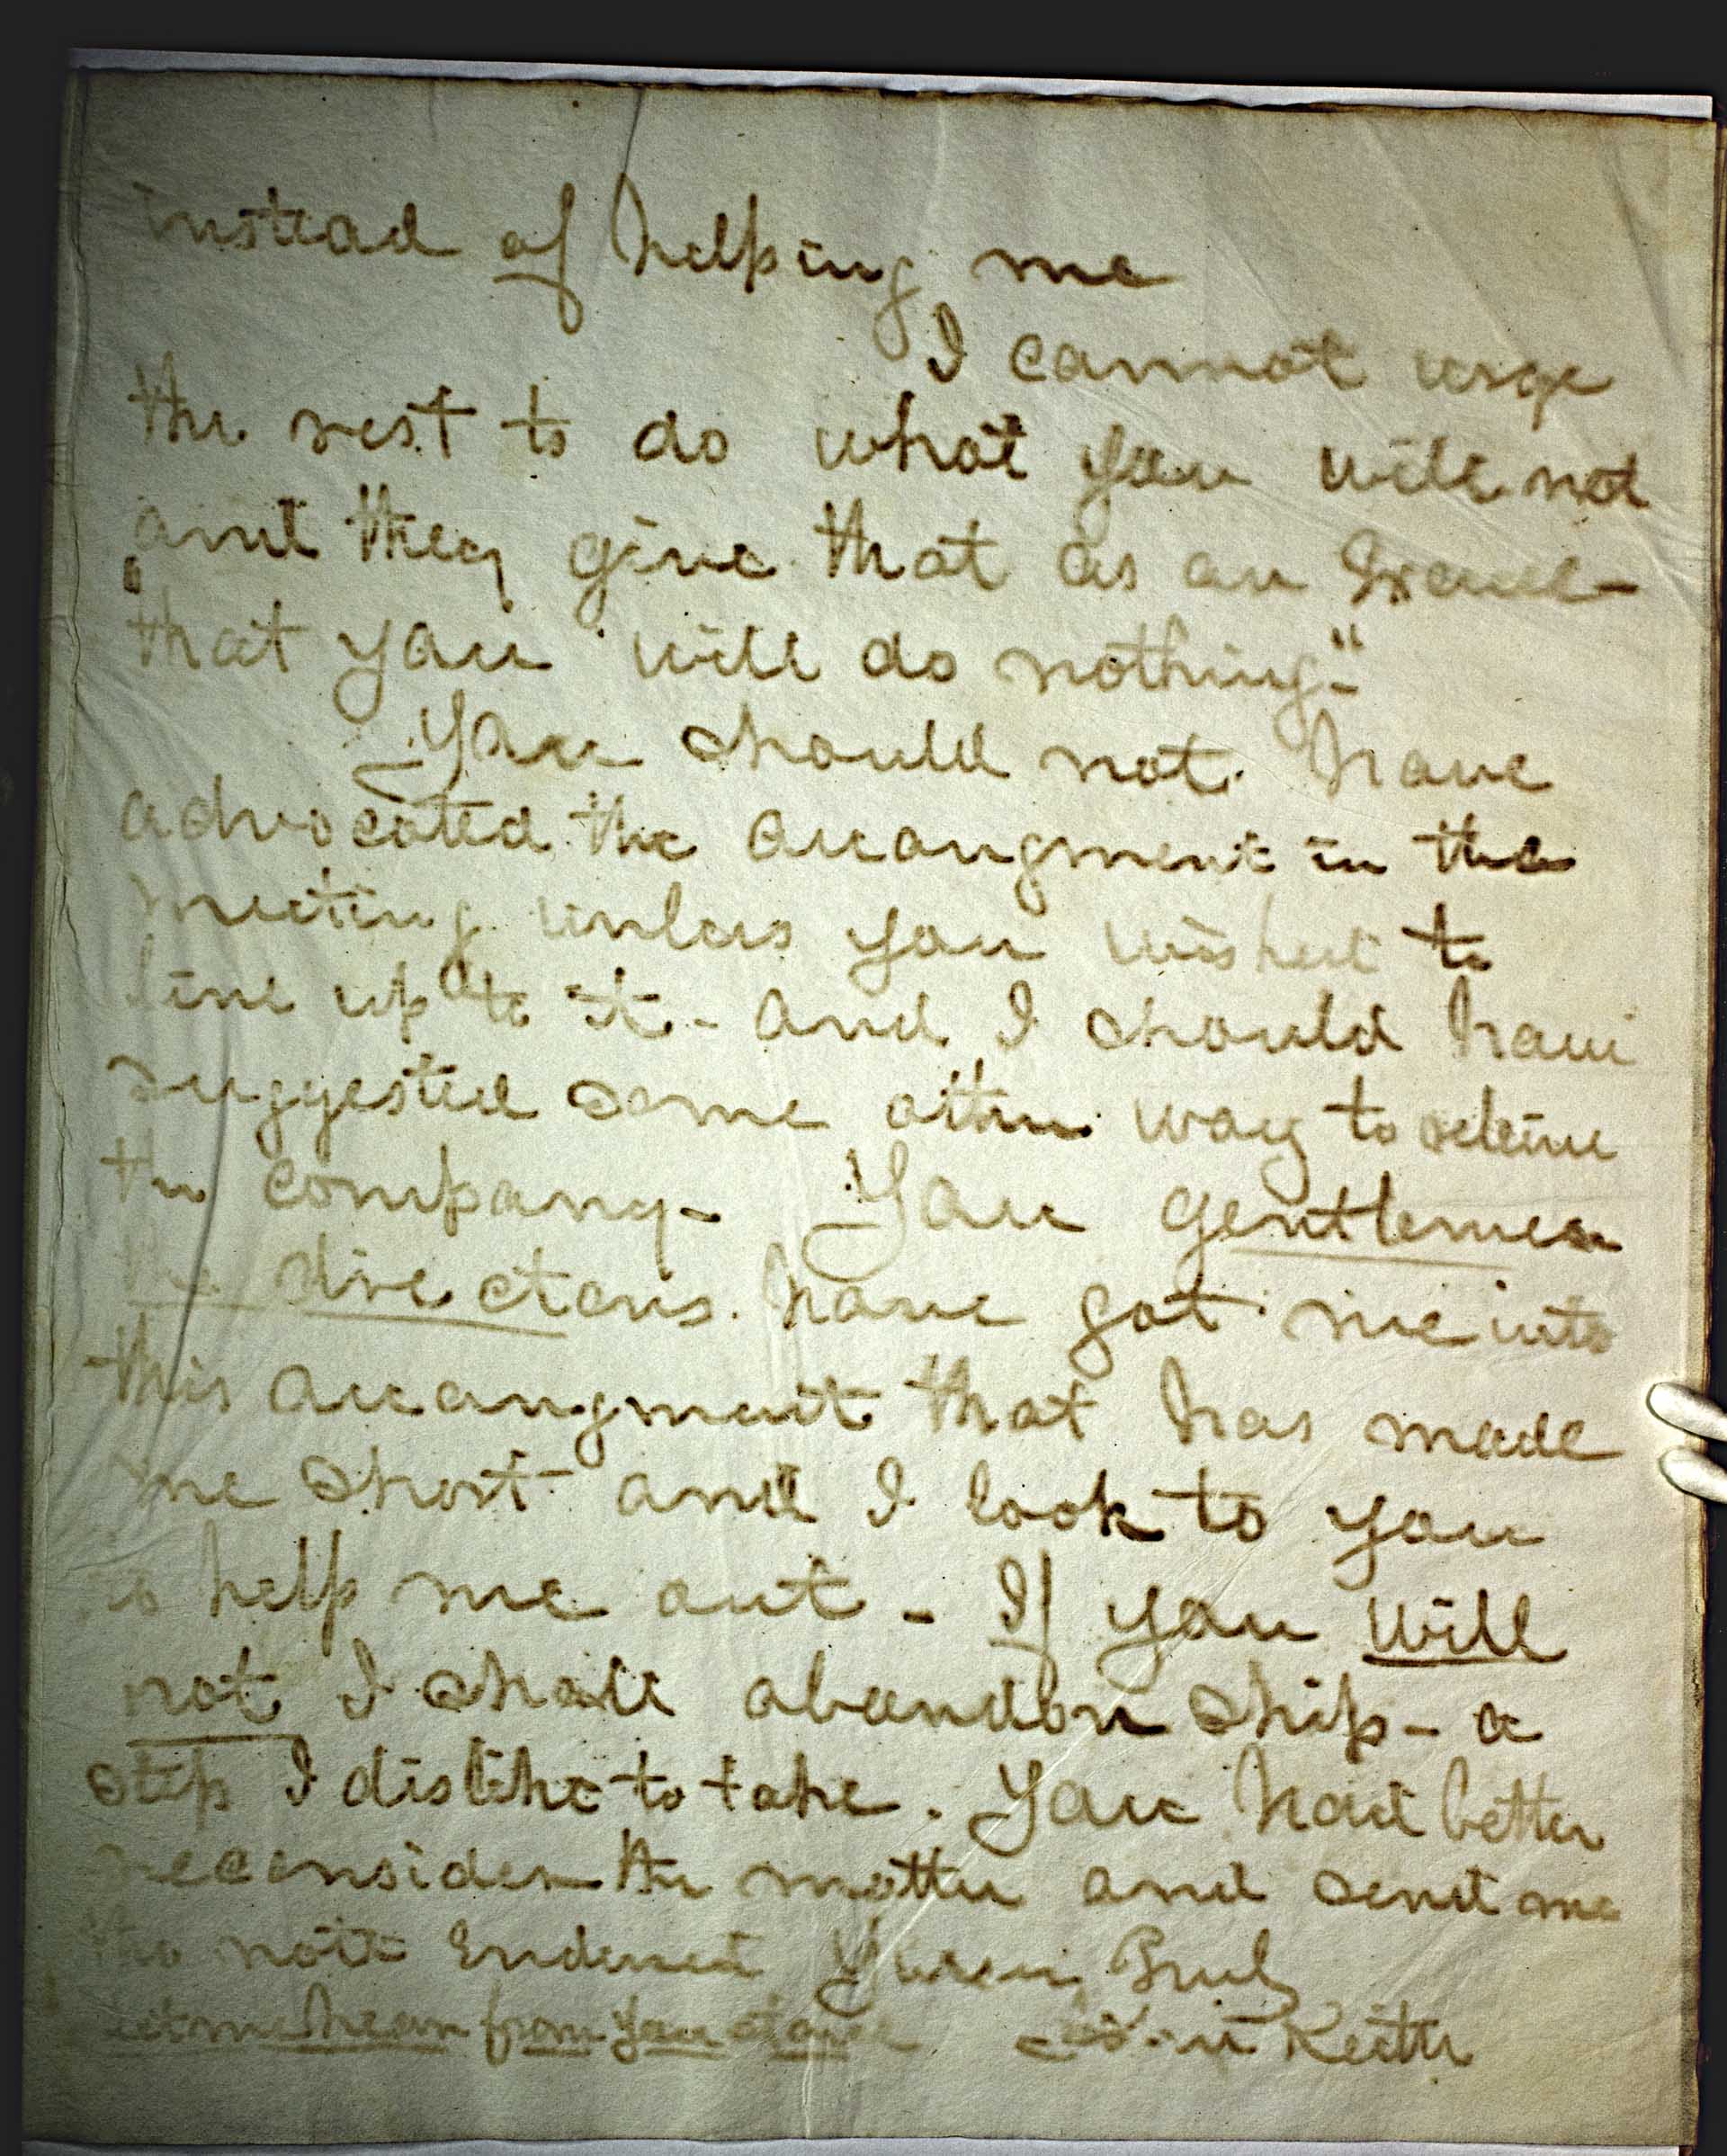 instead of helping me
I cannot urge
the rest to do what you will not
and they give that as an Excuse -
"that you will do nothing."
You should not have
advocated the arrangment in the
meeting unless you wished to
line up to it - and I should have
suggested some other way to relieve
the company - You gentlemen
the directors have got me into
this arrangment that has made
me short - and I look to you
to help me out - If you will
not I shall abandon ship - a
step I dislike to take. You had better
reconsider the matter and send me
the note Endorsed Yours Truly
Let me hear from you at once Keith